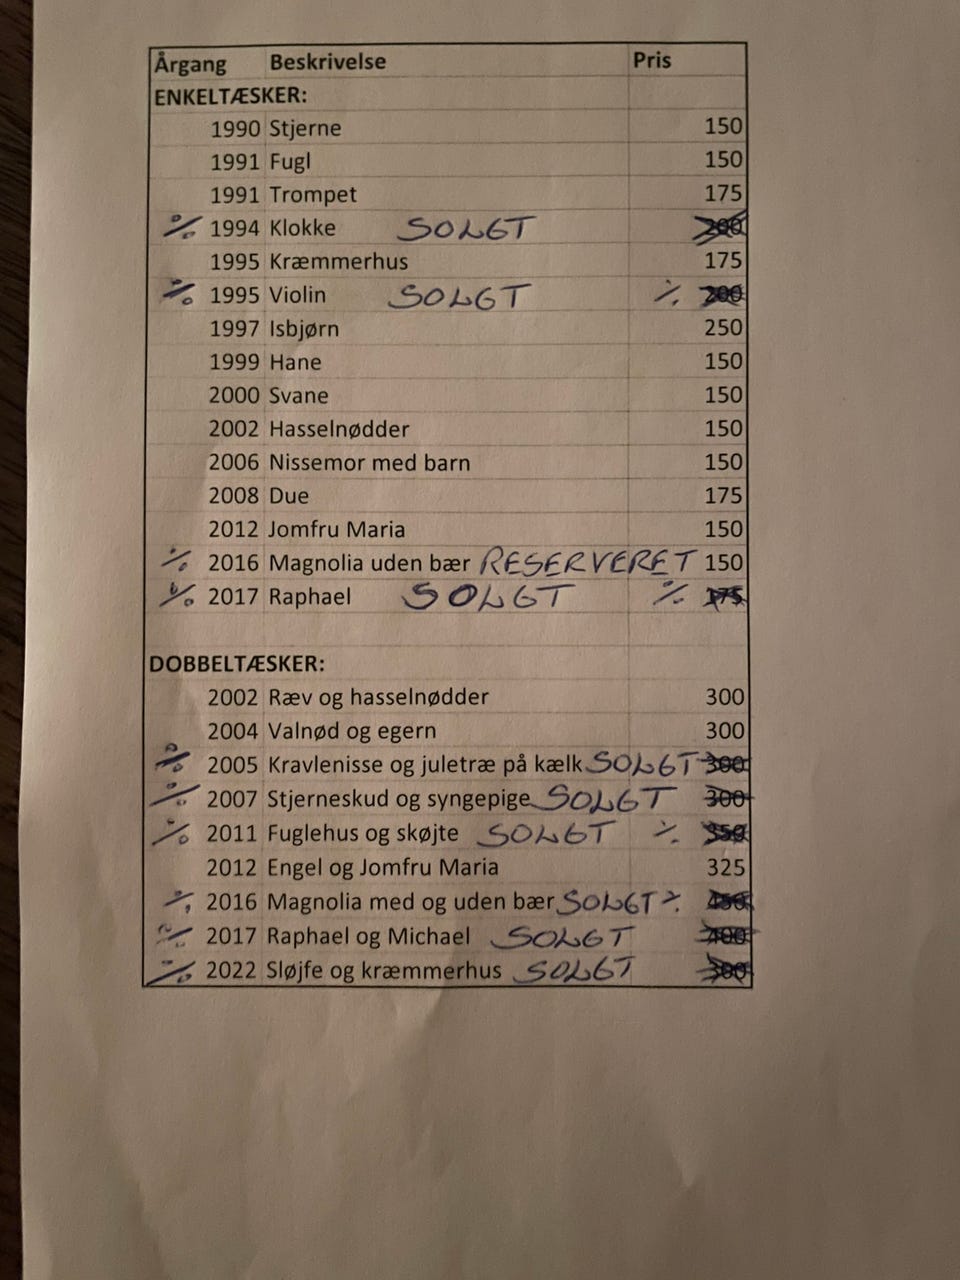 Årgang Beskrivelse Pris
ENKELTÆSKER:
1990 Stjerne 150
1991 Fugl 150
1991 Trompet 175
% 1994 Klokke SOLGT 200
1995 Kræmmerhus 175
% 1995 Violin SOLGT % 200
1997 Isbjørn 250
1999 Hane 150
2000 Svane 150
2002 Hasselnødder 150
2006 Nissemor med barn 150
2008 Due 175
2012 Jomfru Maria 150
% 2016 Magnolia uden bær RESERVERET 150
% 2017 Raphael SOLGT % 175
DOBBELTÆSKER:
2002 Ræv og hasselnødder 300
2004 Valnød og egern 300
% 2005 Kravlenisse og juletræ på kælk SOLGT 300
% 2007 Stjerneskud og syngepige SOLGT 300
% 2011 Fuglehus og skøjte SOLGT % 350
2012 Engel og Jomfru Maria 325
% 2016 Magnolia med og uden bær SOLGT % 450
% 2017 Raphael og Michael SOLGT 400
% 2022 Sløjfe og kræmmerhus SOLGT 300